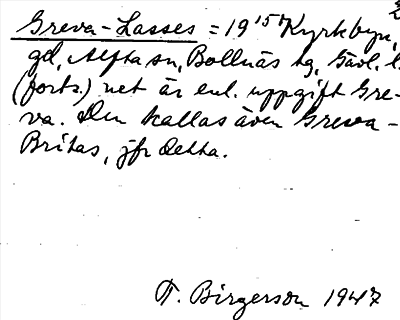 2
Greva-Lasses = 19¹⁵⁻¹ Kyrkbyn,
gd, Alfta sn, Bollnäs tg, Gävl. l.
(forts.) net är enl. uppgift Gre-
va. Den kallas även Greva-
Britas, jfr detta.
T. Birgerson 1947